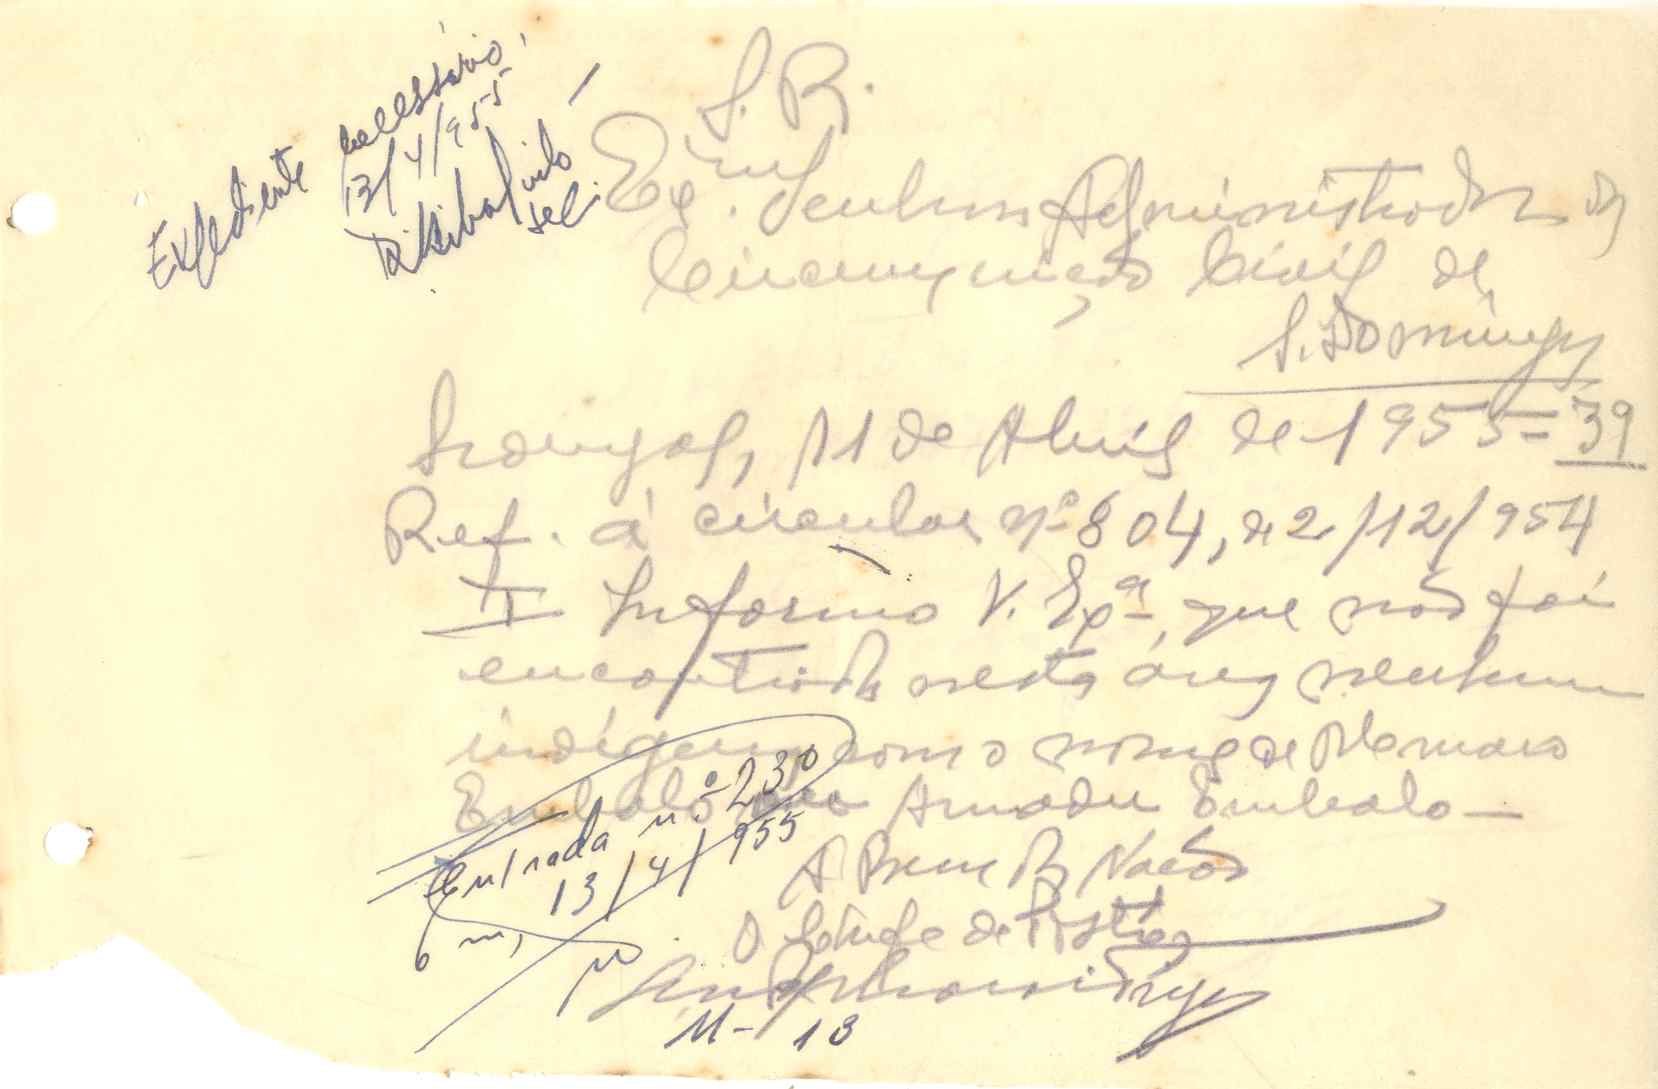 Expediente necessário,
13/4/955
S. R.
Exmº. Senhor Administrador da
Circunscrição Civil de
S. Domingos
11 de Abril de 1955= 39
Ref. á circular nº 804, de 2/12/954
I Informo V. Exª, que não foi
encontrado nesta área nenhum
indígena com o nome de Mamará
Embaló Amadu Embalo—
Entrada n.º 230
13/4/955
A Bem da Nação
O Chefe de Posto,
M- 13